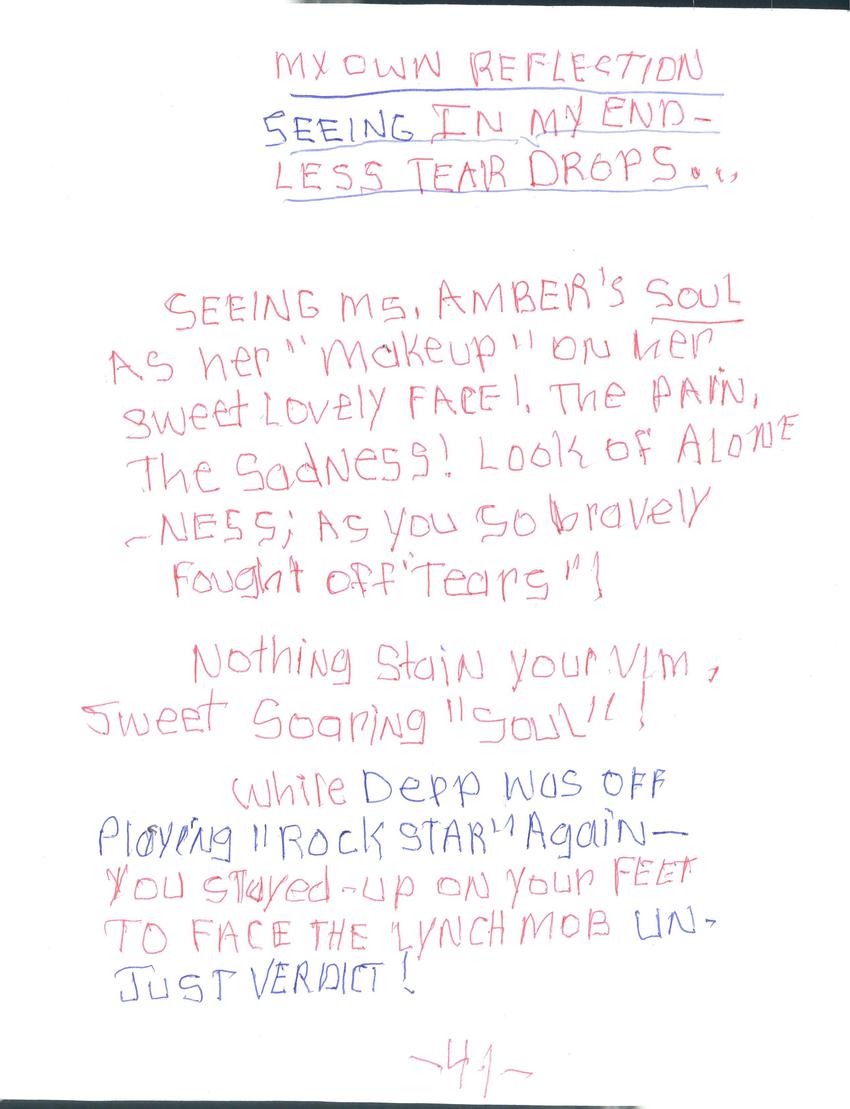 MY OWN REFLECTION
SEEING IN MY END-
LESS TEAR DROPS...
SEEING MS. AMBER'S SOUL
AS her "makeup" ON her
sweet LOVELY FACE!. The PAIN,
The SadNess! Look of ALONE
-NESS; AS you so bravely
Fought off "Tears"!
Nothing Stain your VIM,
Sweet Soaring "Soul"!
While Depp was OFF
Playing "ROCK STAR" Again—
You stayed-up on your FEET
TO FACE THE LYNCH MOB UN-
JUST VERDICT!
-41-